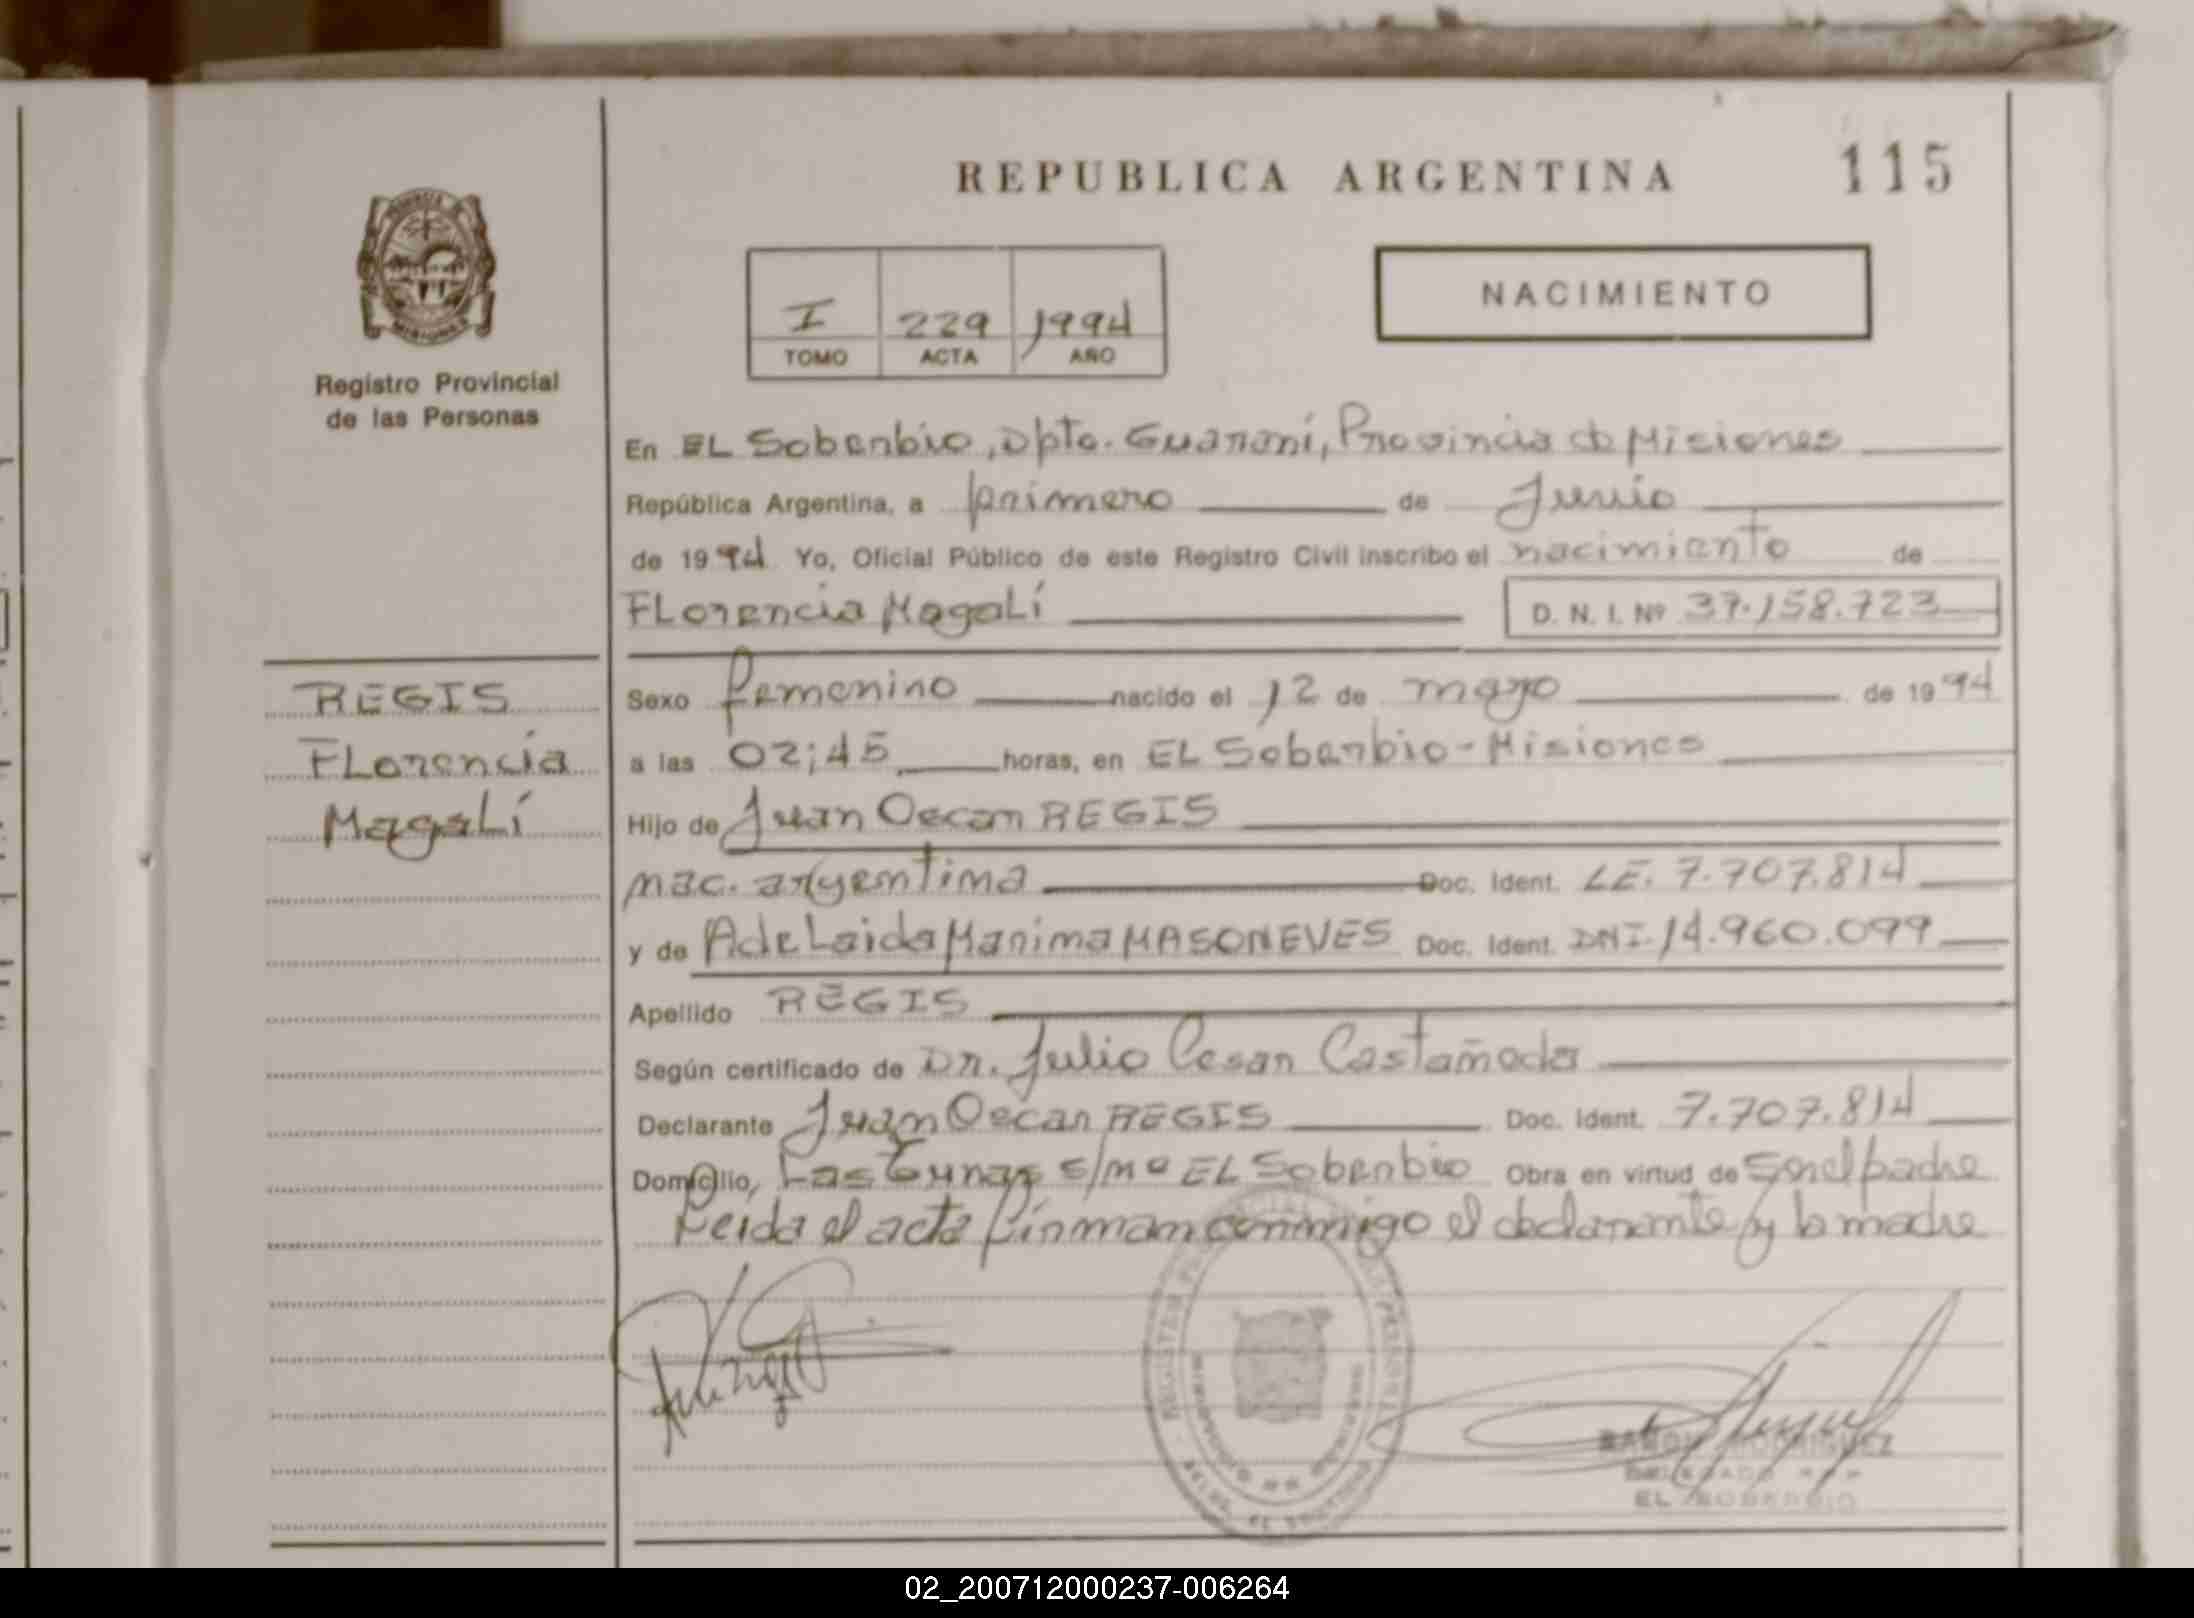 REPUBLICA ARGENTINA
115
Registro Provincial
de las Personas
I 229 1994
TOMO ACTA AÑO
NACIMIENTO
En EL Soberbio, Dpto. Guaraní, Provincia de Misiones
República Argentina, a primero de Junio
de 1994 Yo, Oficial Público de este Registro Civil inscribo el nacimiento de
FLorencia MagaLí
D. N. I. Nº 37.158.723
REGIS
FLorencia
MagaLí
Sexo femenino nacido el 12 de mayo de 1994
a las 02;45 horas, en EL Soberbio - Misiones
Hijo de Juan Oscar REGIS
nac. argentina Doc. Ident. LE. 7.707.814
y de AdeLaida Marina MASONEVES Doc. Ident. DNI. 14.960.099
Apellido REGIS
Según certificado de Dr. Julio Cesar Castañeda
Declarante Juan Oscar REGIS Doc. Ident. 7.707.814
Domicilio, Las Tunas s/nº EL Soberbio Obra en virtud de Ser el padre
Leida el acta firman conmigo el declarante y la madre
RODRIGUEZ
DELEGADO
EL SOBERBIO
02_200712000237-006264